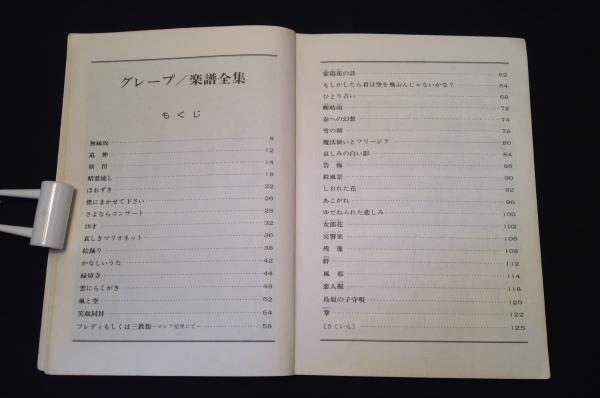 グレープ/楽譜全集
もくじ
無縁坂 8
追伸 12
朝刊 14
精霊流し 18
ほおずき 22
僕にまかせて下さい 26
さよならコンサート 28
19才 32
哀しきマリオネット 36
絵踊り 38
かなしいうた 42
縁切寺 44
雲にらくがき 48
風と空 52
笑顔同封 54
フレディもしくは三教街―ロシア租界にて― 58
紫陽花の詩 62
もしかしたら君は空を飛ぶんじゃないかな? 64
ひとり占い 68
蝉時雨 72
春への幻想 74
雪の朝 78
魔法使いとフリージア 80
哀しみの白い影 84
告悔 86
殺風景 90
しおれた花 92
あこがれ 96
ゆだねられた悲しみ 100
女郎花 102
交響楽 106
残像 108
絆 112
風邪 114
恋人擬 118
島原の子守唄 120
掌 122
〔さくいん〕 125